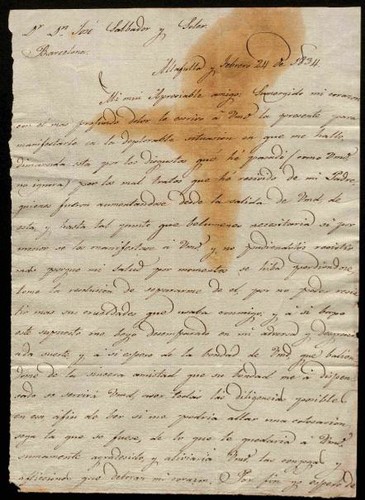 Dr. Dn. José Salbador y Soler.
Barcelona.
Altafulla y Febrero 24 de 1834.
Mi muy Apreciable amigo: Sumergido mi corazon
con el mas profundo dolor le escrivo á Vmd. la presente para
manifestarle en la deplorable situacion en que me hallo,
dimanada esta por los disgustos que hé pasado (como Vmd.
no ignora) por los mal tratos que hé recivido de mi Padre,
quienes fueron aumentandose desde la salida de Vmd. de
esta, y hasta tal punto que volumenes necesitaria si por
menor se lo manifestase á Vmd. y no pudiendoles resistir
mas porque mi salud por momentos se hiba perdiendose,
tomé la resolucion de separarme de el por no poder resis-
tir mas sus crueldades que usaba conmigo, y á si bajo
este supuesto me hayo desamparado en mi adversa y desgraci-
ada suerte, y á si espero de la bondad de Vmd. que
de la sincera amistad que su bondad no á
se servirá Vmd. aser todas las diligencias posibles
en esa afin de ber si me podria allar una colocacion
sega la que se fuese, de lo que quedaria á Vmd.
sumamente agradecido, y aliviaria Vmd. las congojas y
aflicciones que debran mi corazon. Por fin yo espero de